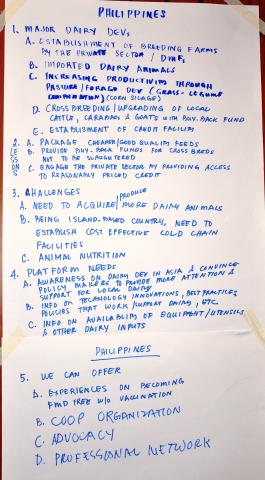 PHILIPPINES
1. MAJOR DAIRY DEVs
A. ESTABLISHMENT OF BREEDING FARMS
BY THE PRIVATE SECTOR /
B. IMPORTED DAIRY ANIMALS
C. INCREASING PRODUCTIVITY THROUGH
PASTURE/FORAGE DEV (GRASS-LEGUME
COMBINATION) (CORN SILAGE)
D. CROSS BREEDING/UPGRADING OF LOCAL
CATTLE, CARABAO & GOATS WITH BUY-BACK FUND
E. ESTABLISHMENT OF CREDIT FACILITY
2. A. PACKAGE CHEAPER/GOOD QUALITY FEEDS
B. PROVIDE BUY-BACK FUNDS FOR CROSS BREDS
NOT TO BE SLAUGHTERED
C. ENGAGE THE PRIVATE SECTOR BY PROVIDING ACCESS
TO REASONABLY PRICED CREDIT
3. CHALLENGES
A. NEED TO ACQUIRE/PRODUCE MORE DAIRY ANIMALS
B. BEING ISLAND-BASED COUNTRY, NEED TO
ESTABLISH COST EFFECTIVE COLD CHAIN
FACILITIES
C. ANIMAL NUTRITION
4. PLATFORM NEEDS
A. AWARENESS ON DAIRY DEV IN ASIA & CONVINCE
POLICY MAKERS TO PROVIDE MORE ATTENTION &
SUPPORT FOR LOCAL DAIRY
B. INFO ON TECHNOLOGY INNOVATIONS, BEST PRACTICES
POLICIES THAT WORK/SUPPORT DAIRY, ETC
C. INFO ON AVAILABILITY OF EQUIPMENT/UTENSILS
& OTHER DAIRY INPUTS
PHILIPPINES
5. WE CAN OFFER
A. EXPERIENCES ON BECOMING
FMD FREE W/O VACCINATION
B. COOP ORGANIZATION
C. ADVOCACY
D. PROFESSIONAL NETWORK